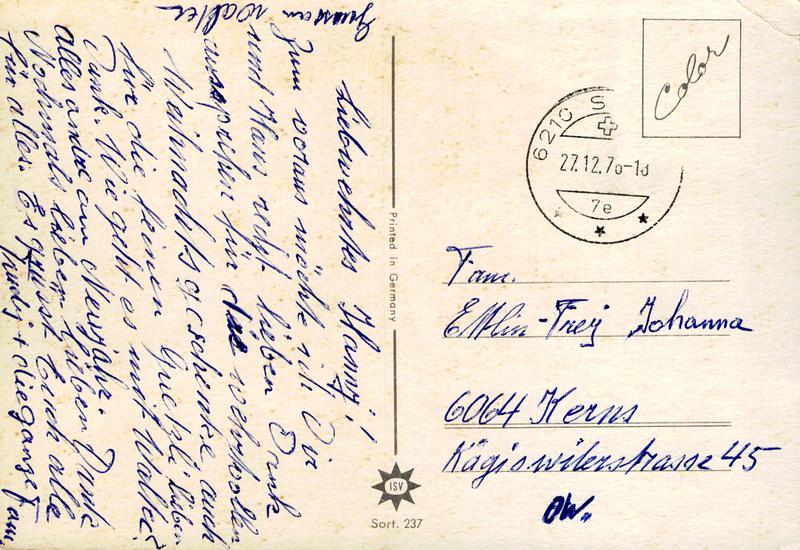 Liebwehrtes Hanny!
Zum voraus möchte ich Dir
und Hans recht lieben Dank
aussprechen für das wertvollen
Weihnachtsgeschenke auch
für die feinen Guetzli lieben
Dank. Wie geht es mit Walter?
alles andre am Neujahr.
Nochmals lieben lieben Dank
für alles. Es grüsst Euch alle
Trudy + die ganze Fam.
Gruss an Walter
Printed in Germany
ISV
Sort. 237
Color
6210 S
27.12.76-18
7e
Fam.
Ettlin-Frey Johanna
6064 Kerns
Kägiswilerstrasse 45
OW.